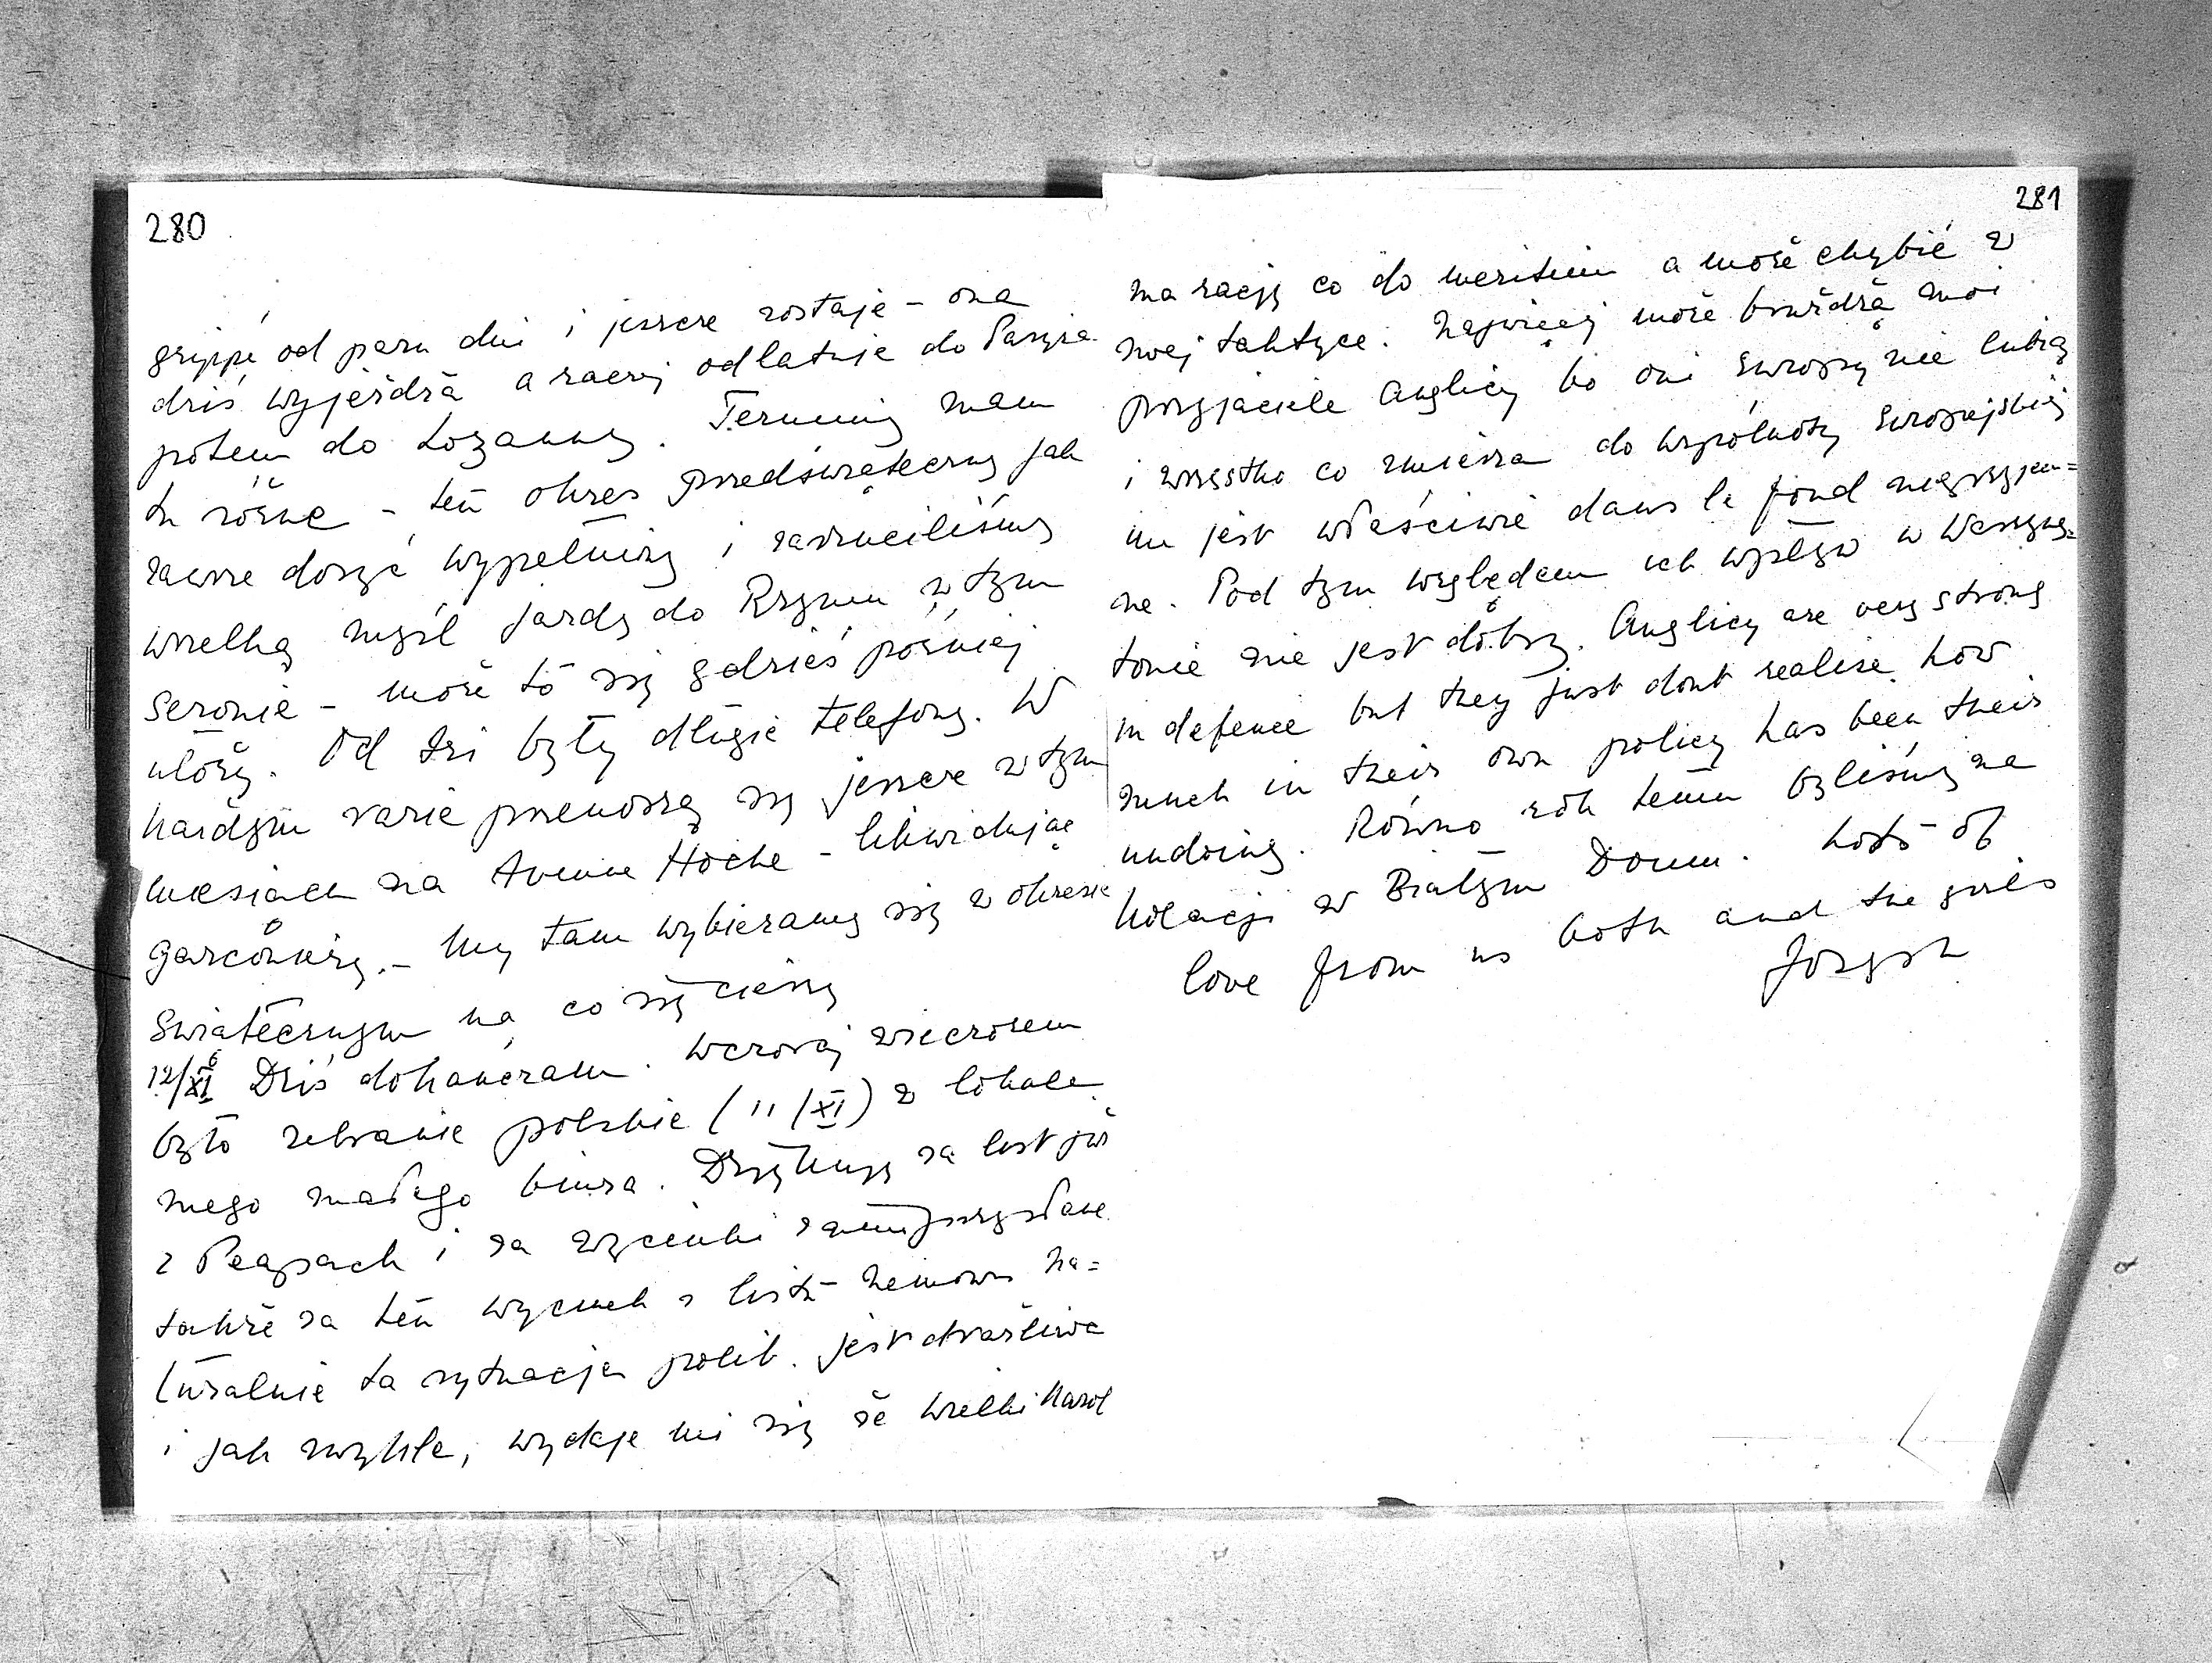 280
grippé od paru dni i jeszcze zostaje – ona
dziś wyjeżdża a raczej odlatuje do Paryża
potem do Lozanny. Terminy mam
tu różne – ten okres przedświąteczny jak
zawsze dosyć wypełniony i zarzuciliśmy
wszelką myśl jazdy do Rzymu w tym
sezonie – może to się gdzieś później
ułoży. Od Izi były długie telefony. W
każdym razie przenoszą się jeszcze w tym
miesiącu na Avenue Hoche – likwidując
garçonierę. – My tam wybieramy się w okresie
świątecznym na co się cieszę
12/XI Dziś dokańczam. Wczoraj wieczorem
było zebranie polskie (11/XI) w lokalu
mego małego biura. Dziękuję za list już
z Peapack i za wycinki przysłane
także za ten wycinek z listu Na=
turalnie ta sytuacja polit. jest drażliwa
i jak zwykle, wydaje mi się że wielki Karol
281
ma rację co do meritum a może chybić w
swej taktyce. Najwięcej może bruździą moi
przyjaciele Anglicy bo oni Europy nie lubią
i wszystko co zmierza do wspólnoty Europejskiej
im jest właściwie dans le fond nieprzyjem=
ne. Pod tym względem ich wpływ w Waszyng=
tonie nie jest dobry. Anglicy are very strong
in defence but they just dont realise how
much in their own policy has been their
undoing. Równo rok temu byliśmy na
kolacji w Białym Domu. Lots of
love from us both and the girls
Józysz